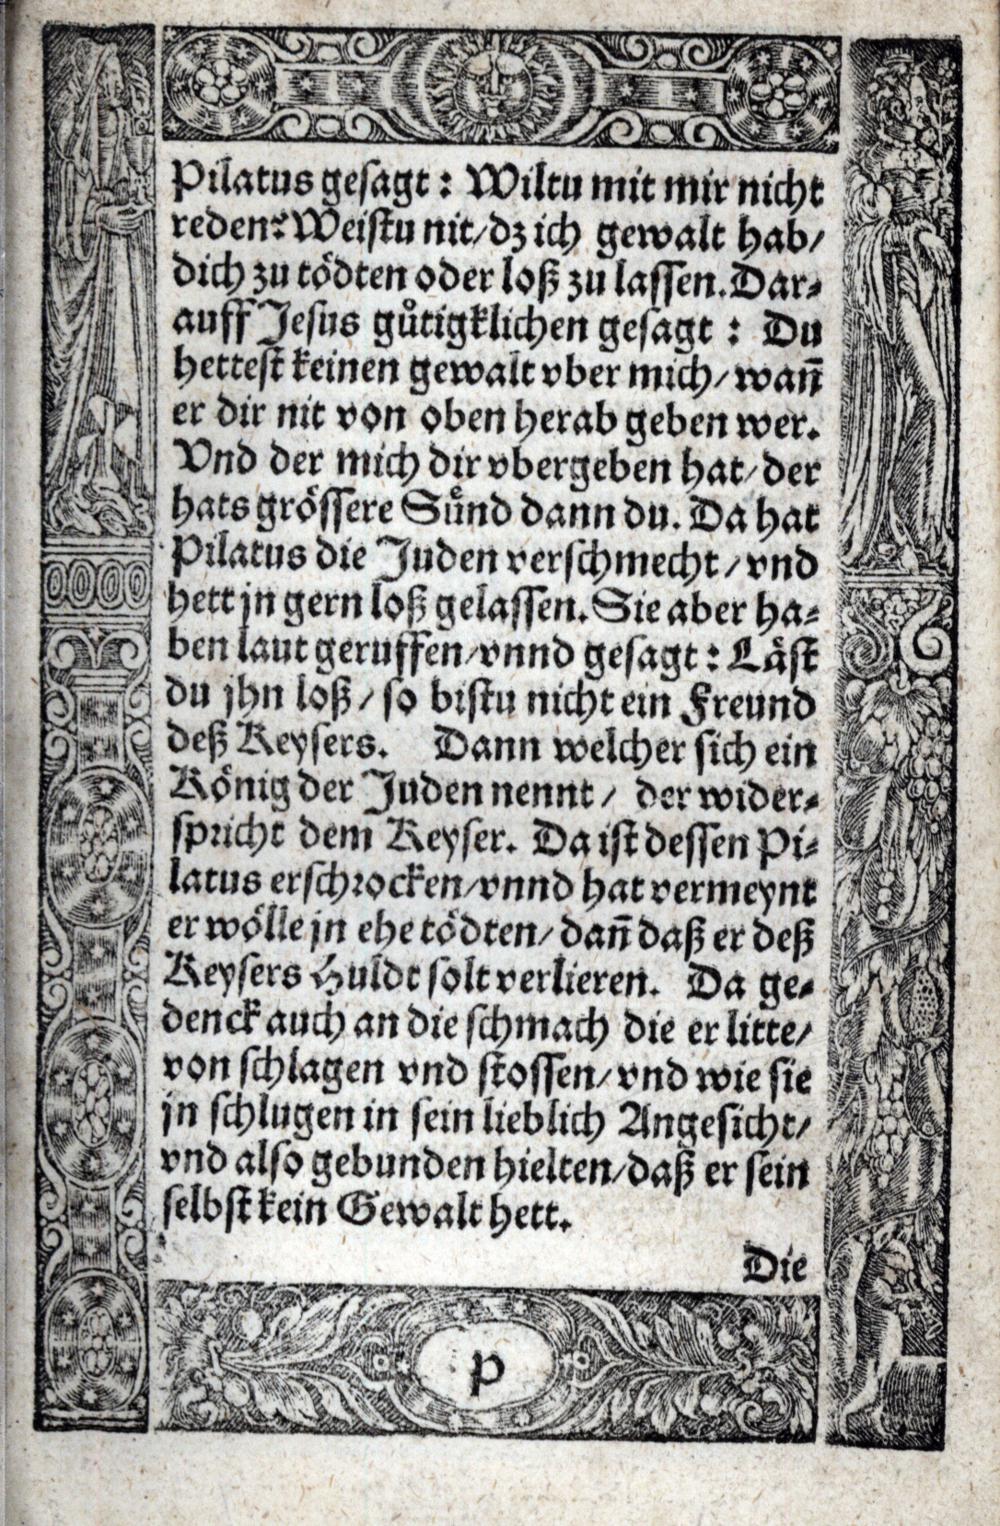 Pilatus gesagt: Wiltu mit mir nicht
reden? Weistu nit/ dz ich gewalt hab/
dich zu tödten oder loß zu lassen. Dar⸗
auff Jesus guͤtigklichen gesagt: Du
hettest keinen gewalt vber mich/ wañ
er dir nit von oben herab geben wer.
Vnd der mich dir vbergeben hat/ der
hats grössere Suͤnd dann du. Da hat
Pilatus die Juden verschmecht/ vnd
hett jn gern loß gelassen. Sie aber ha⸗
ben laut geruffen/ vnnd gesagt: Läst
du jhn loß/ so bistu nicht ein Freund
deß Keysers. Dann welcher sich ein
König der Juden nennt/ der wider⸗
spricht dem Keyser. Da ist dessen Pi⸗
latus erschrocken/ vnnd hat vermeynt
er wölle jn ehe tödten/ dañ daß er deß
Keysers Huldt solt verlieren. Da ge⸗
denck auch an die schmach die er litte/
von schlagen vnd stossen/ vnd wie sie
jn schlugen in sein lieblich Angesicht/
vnd also gebunden hielten/ daß er sein
selbst kein Gewalt hett.
Die
p